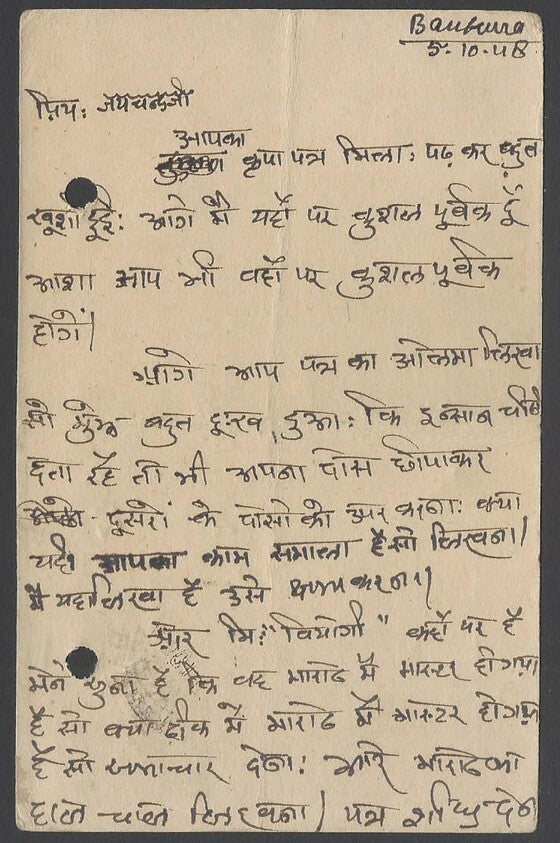 Bankura
5.10.48
प्रिय: जयचन्दजी
आपका
कृपा पत्र मिला: पढ़ कर बहुत
खूशी हुई: आगे मै यहाँ पर कुशल पूर्वक हूँ
आशा आप भी वहाँ पर कुशल पूर्वक
होगें।
आगे आप पत्र का ओलमा लिखा
सो मुझे बहुत दुःख हुआ: कि इन्सान
देता रहै तो भी आपना दोस छीपाकर
दूसरों के दोसो को करना: क्या
यही आपका काम समाला है सो लिखना।
मै यहा लिखा है उसे क्षमा करना।
और मि: "वियोगी" कहाँ पर है
मेने सुना है कि वह भारोट मै मास्टर होगया
है सो क्या ठीक मै भारोट मै मास्टर होगया
है सो समाचार देना: और भारोट का
हाल चाल लिखना। पत्र शीघ्र देना